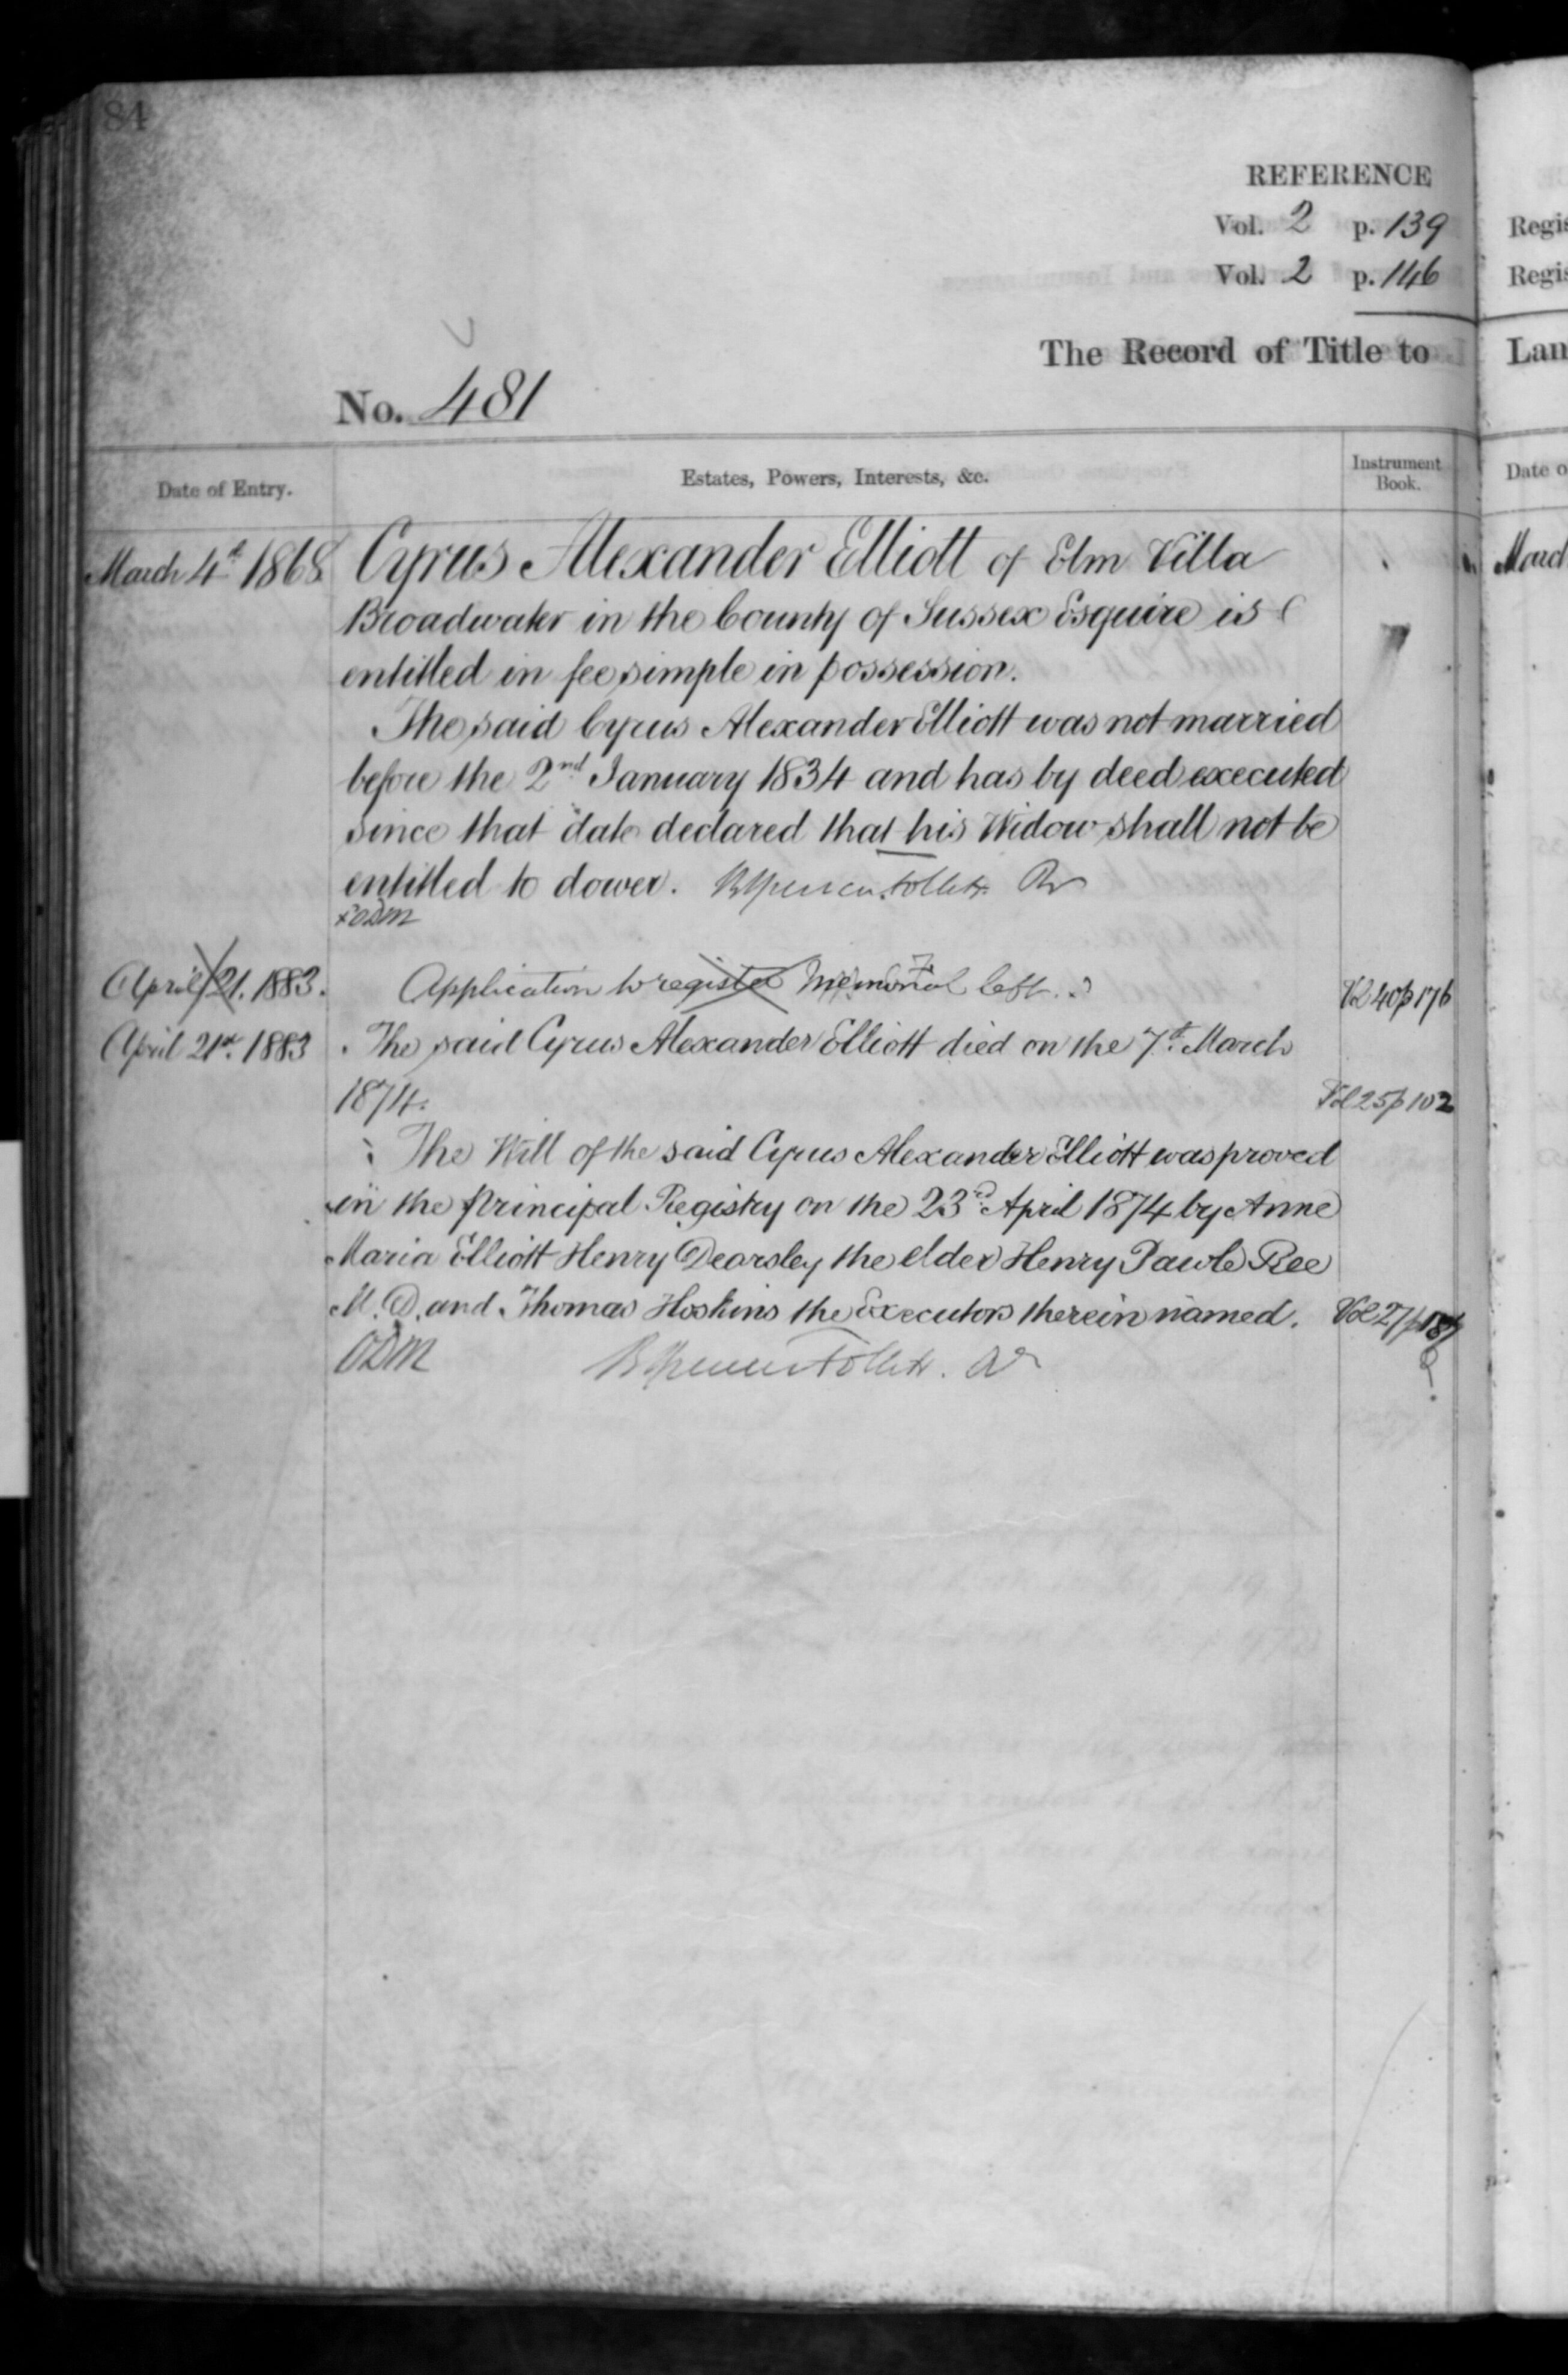 84
REFERENCE
Vol. 2 p. 139
Vol. 2 p. 146
The Record of Title to
No. 481
Date of Entry.
Estates, Powers, Interests, &c.
Instrument Book.
March 4th 1868 Cyrus Alexander Elliott of Elm Villa
Broadwater in the County of Sussex Esquire is
entitled in fee simple in possession.
The said Cyrus Alexander Elliott was not married
before the 2nd January 1834 and has by deed executed
since that date declared that his Widow shall not be
entitled to dower.
ODM
April 21. 1883. Application to register Memorial left. Vol 40 p 176
April 21st. 1883 The said Cyrus Alexander Elliott died on the 7th March
1874. Vol 25 p 102
The Will of the said Cyrus Alexander Elliott was proved
in the Principal Registry on the 23rd April 1874 by Anne
Maria Elliott Henry Dearsley the elder Henry Pawle Ree
M.D. and Thomas Hoskins the Executors therein named. Vol 27 p
ODM
Regis
Regis
Lan
Date o
March